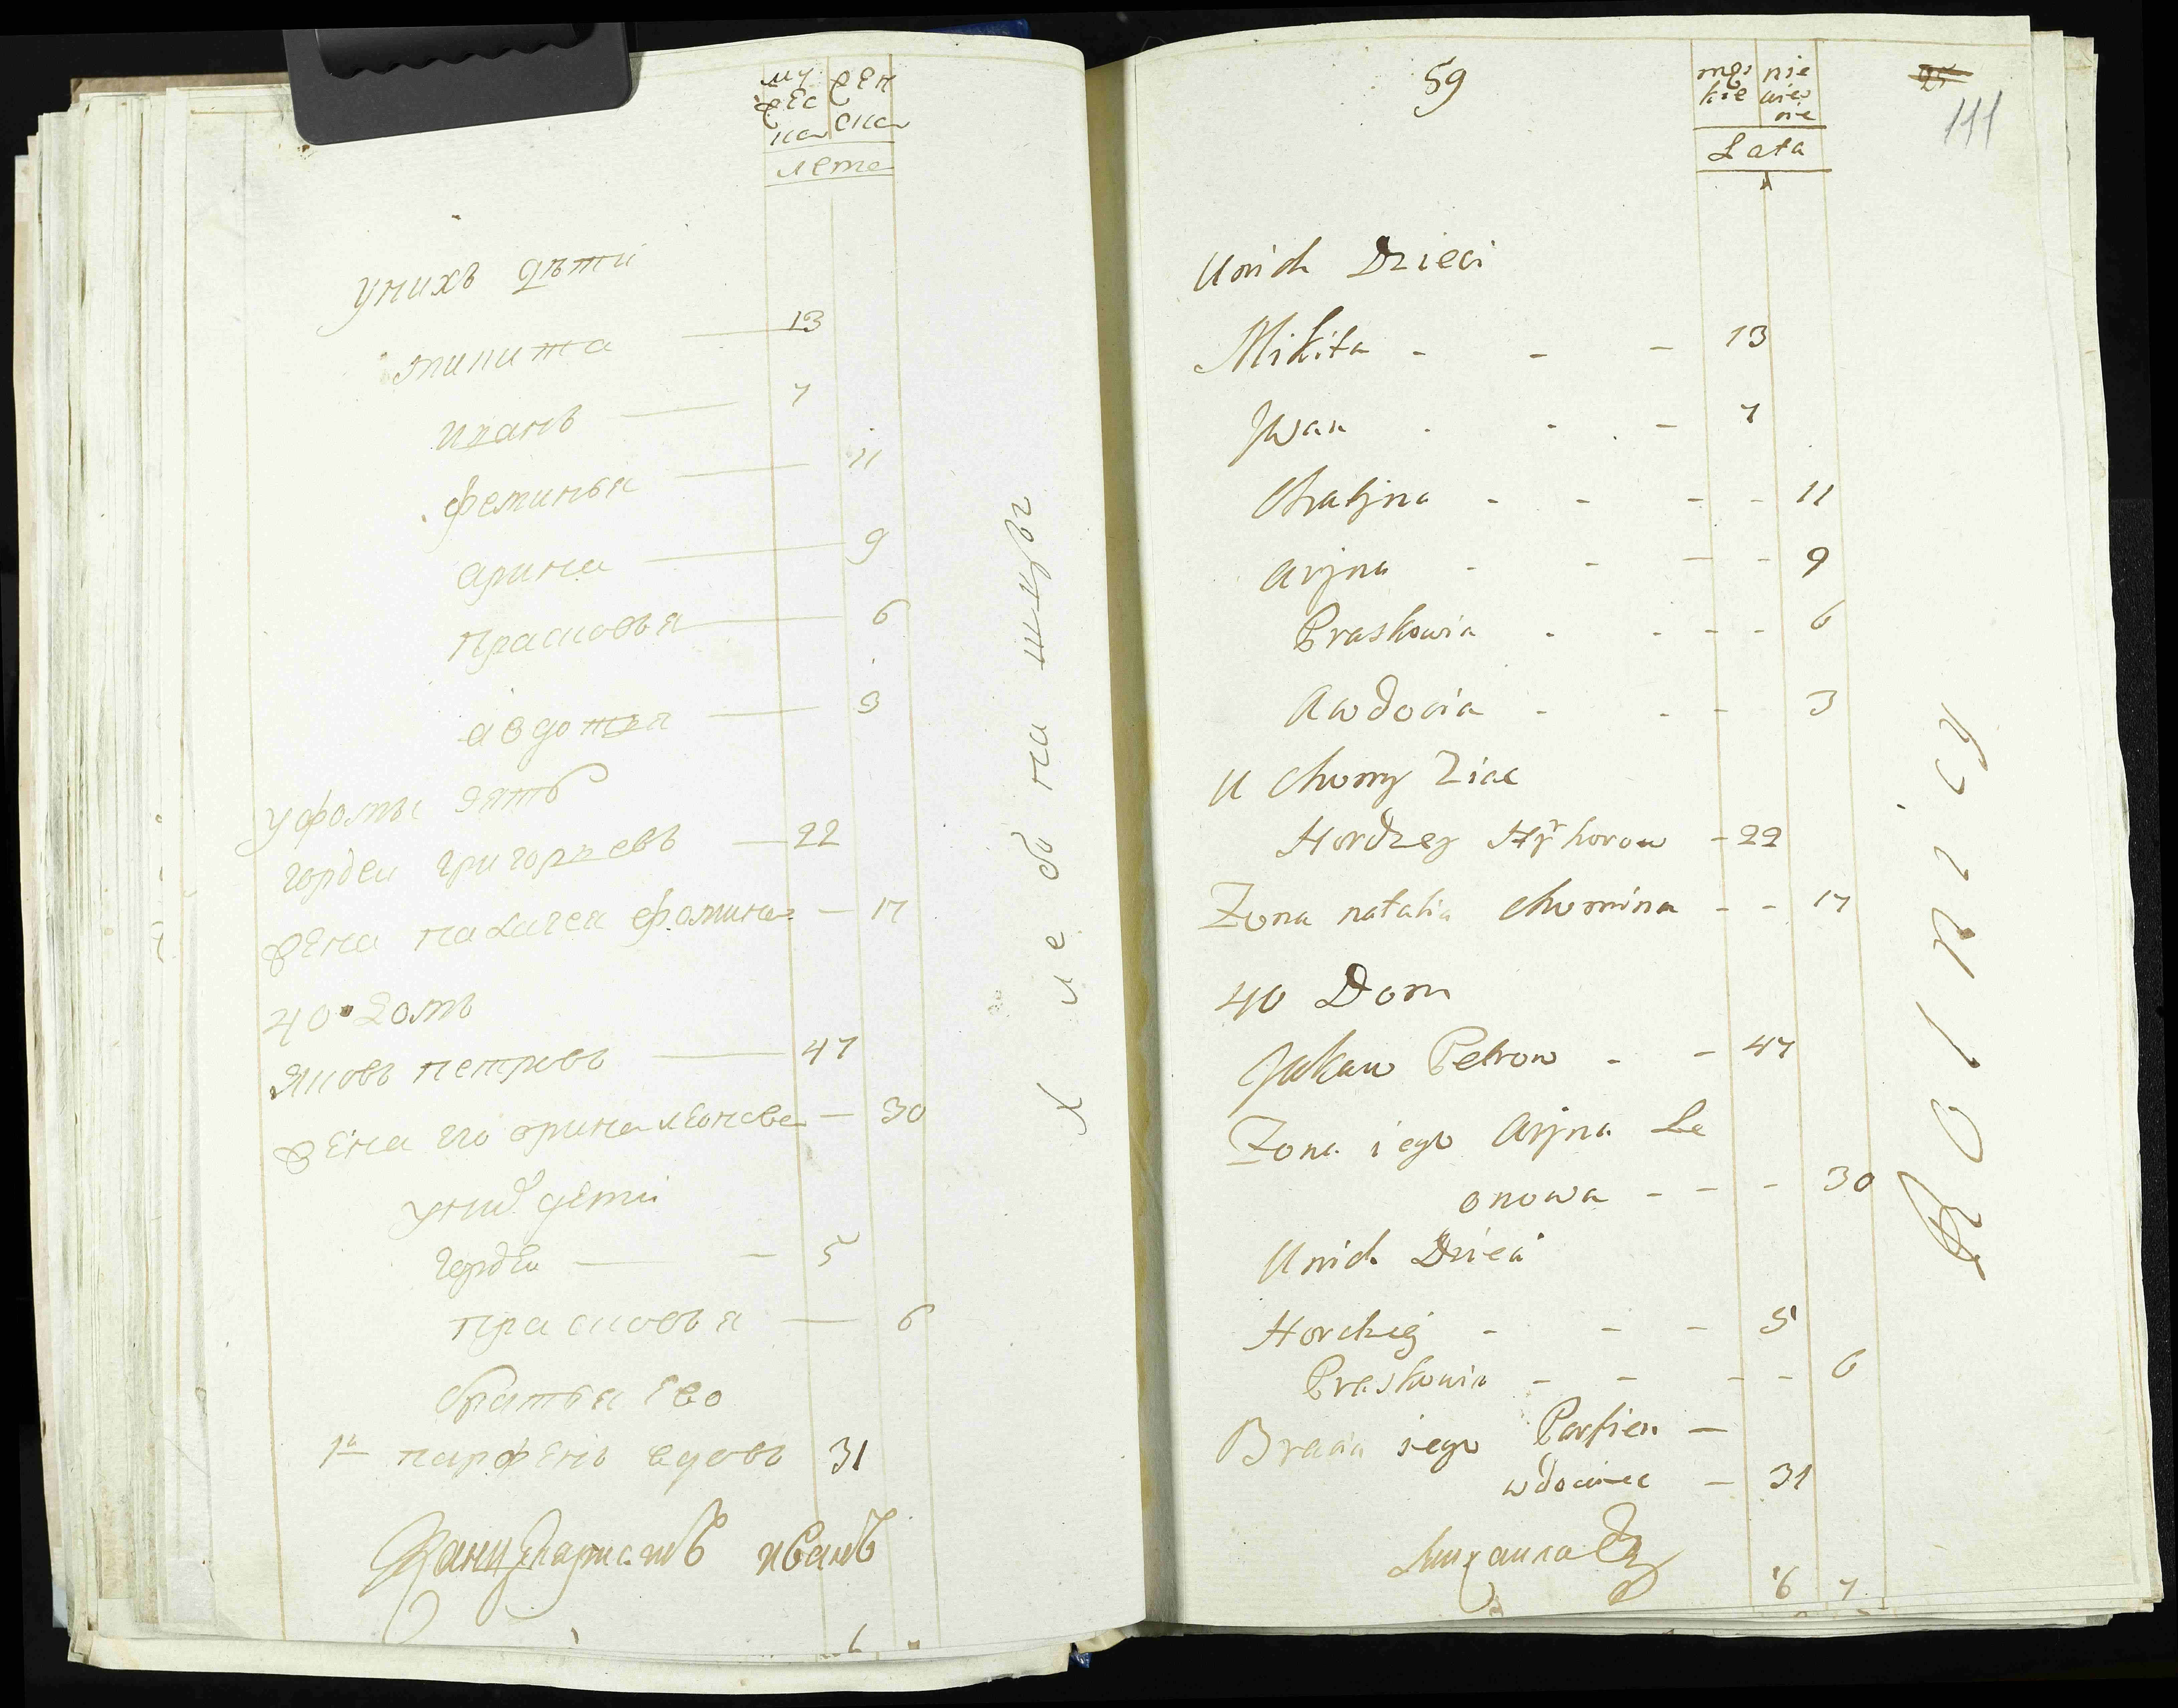 му жен
жес ска
ка
лета
унихъ дѣти
микита 13
иванъ 7
феминья 11
арина 9
Прасковья 6
авдотья 3
уфомы зять
гордеи григорьевъ 22
жена наталея фомина 17
40 домъ
яковъ петровъ 47
жена его орина леонова 30
уних дети
гордеи 5
прасковья 6
братья ево
1й парфенъ вдовъ 31
Канцеляристъ иванъ
6
хлебопашцы
59
męs nie
kie wie
nie
Lata
25
111
Unich Dzieci
Mikita - - - 13
Jwan - - - 7
Chalijna - - - - 11
Arijna - - - - 9
Praskowia - - - - 6
Awdocia - - - 3
U Chomy Ziac
Hordzey Hryhorow - 22
Zona natalia Chomina - - 17
40 Dom
Jakaw Petrow - - 47
Zona iego Arijna Le
onowa - - - 30
Unich Dzieci
Hordziej - - - 5
Praskowia - - - - 6
Bracia iego Parfien -
wdowiec - 31
Михаила
6 7
Rolnicy